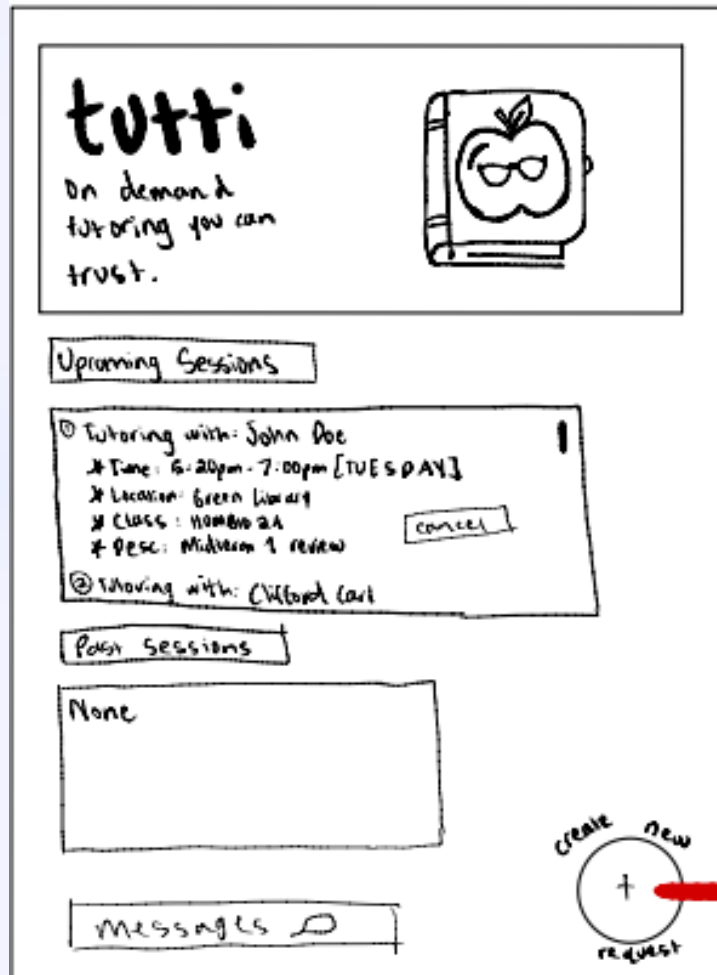 tutti
On demand
tutoring you can
trust.
Upcoming Sessions
① Tutoring with: John Doe
* Time: 6:20pm - 7:00pm [TUESDAY]
* Location: Green Library
* Class: HUMBIO 2A
* Desc: Midterm 1 review
cancel
② Tutoring with: Clifford Carl
Past sessions
None
create new
+
request
messages